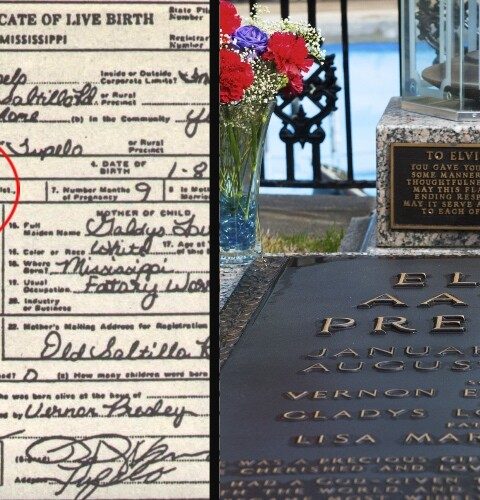 ATE OF LIVE BIRTH
State File
Number
MISSISSIPPI
Registrar
Number
Inside or Outside
Corporate Limits?
Saltillo Rd. or Rural
Precinct
(b) In the Community
Tupelo or Rural
Precinct
4. DATE OF
BIRTH 1-8
7. Number Months 9
of Pregnancy
MOTHER OF CHILD
15. Full
Maiden Name Gladys
16. Color or Race White 17. Age at
18. Where
Born? Mississippi
19. Usual
Occupation Factory
20. Industry
or Business
22. Mother's Mailing Address for Registration
Old Saltillo R
How many children were born
she was born alive at the hour of
by Vernon Presley
(Signed)
Address
TO ELVI
YOU GAVE YOU
SOME MANNER
THOUGHTFULNE
MAY THIS FLA
ENDING RESP
MAY IT SERVE A
TO EACH OF
EL
AA
PRE
JANUA
AUGUS
VERNON E
GLADYS LO
FA
LISA MAR
CHERISHED AND LOV
HAD A GOD-GIVEN
THE WORLD